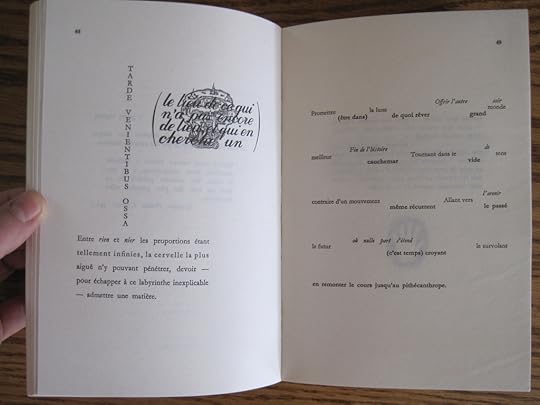 48
TARDE VENIENTIBUS OSSA
(le lieu de ce qui
n'a pas encore
de lieu et qui en
cherche un)
Entre rien et nier les proportions étant
tellement infinies, la cervelle la plus
aiguë n'y pouvant pénétrer, devoir —
pour échapper à ce labyrinthe inexplicable
— admettre une matière.
49
Promettre la lune Offrir l'autre soir monde
(être dans) de quoi rêver grand
meilleur Fin de l'histoire Tournant dans le de sens
cauchemar vide
contraire d'un mouvement Allant vers l'avenir
même récurrent le passé
le futur où nulle part l'étend le survolant
(c'est temps) croyant
en remonter le cours jusqu'au pithécanthrope.